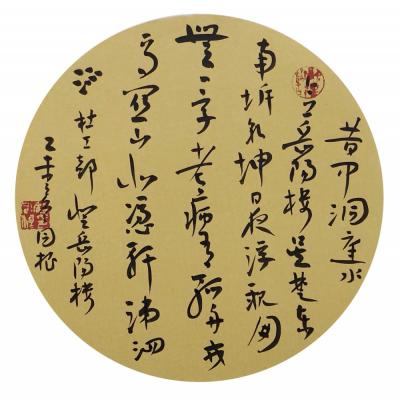 昔闻洞庭水
今上岳陽楼吴楚东
南坼乾坤日夜浮親朋
無一字老病有孤舟戎
马関山北凭轩涕泗
流 杜工部登岳陽楼
乙未